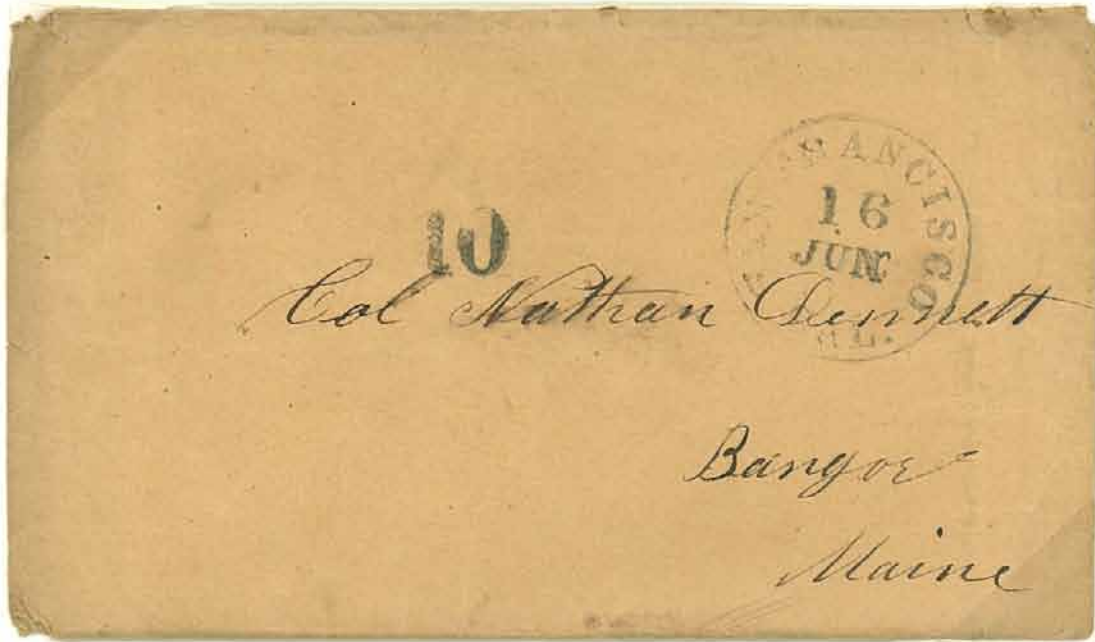 SAN FRANCISCO
16
JUN
CAL.
10
Col Nathan Dennett
Bangor
Maine